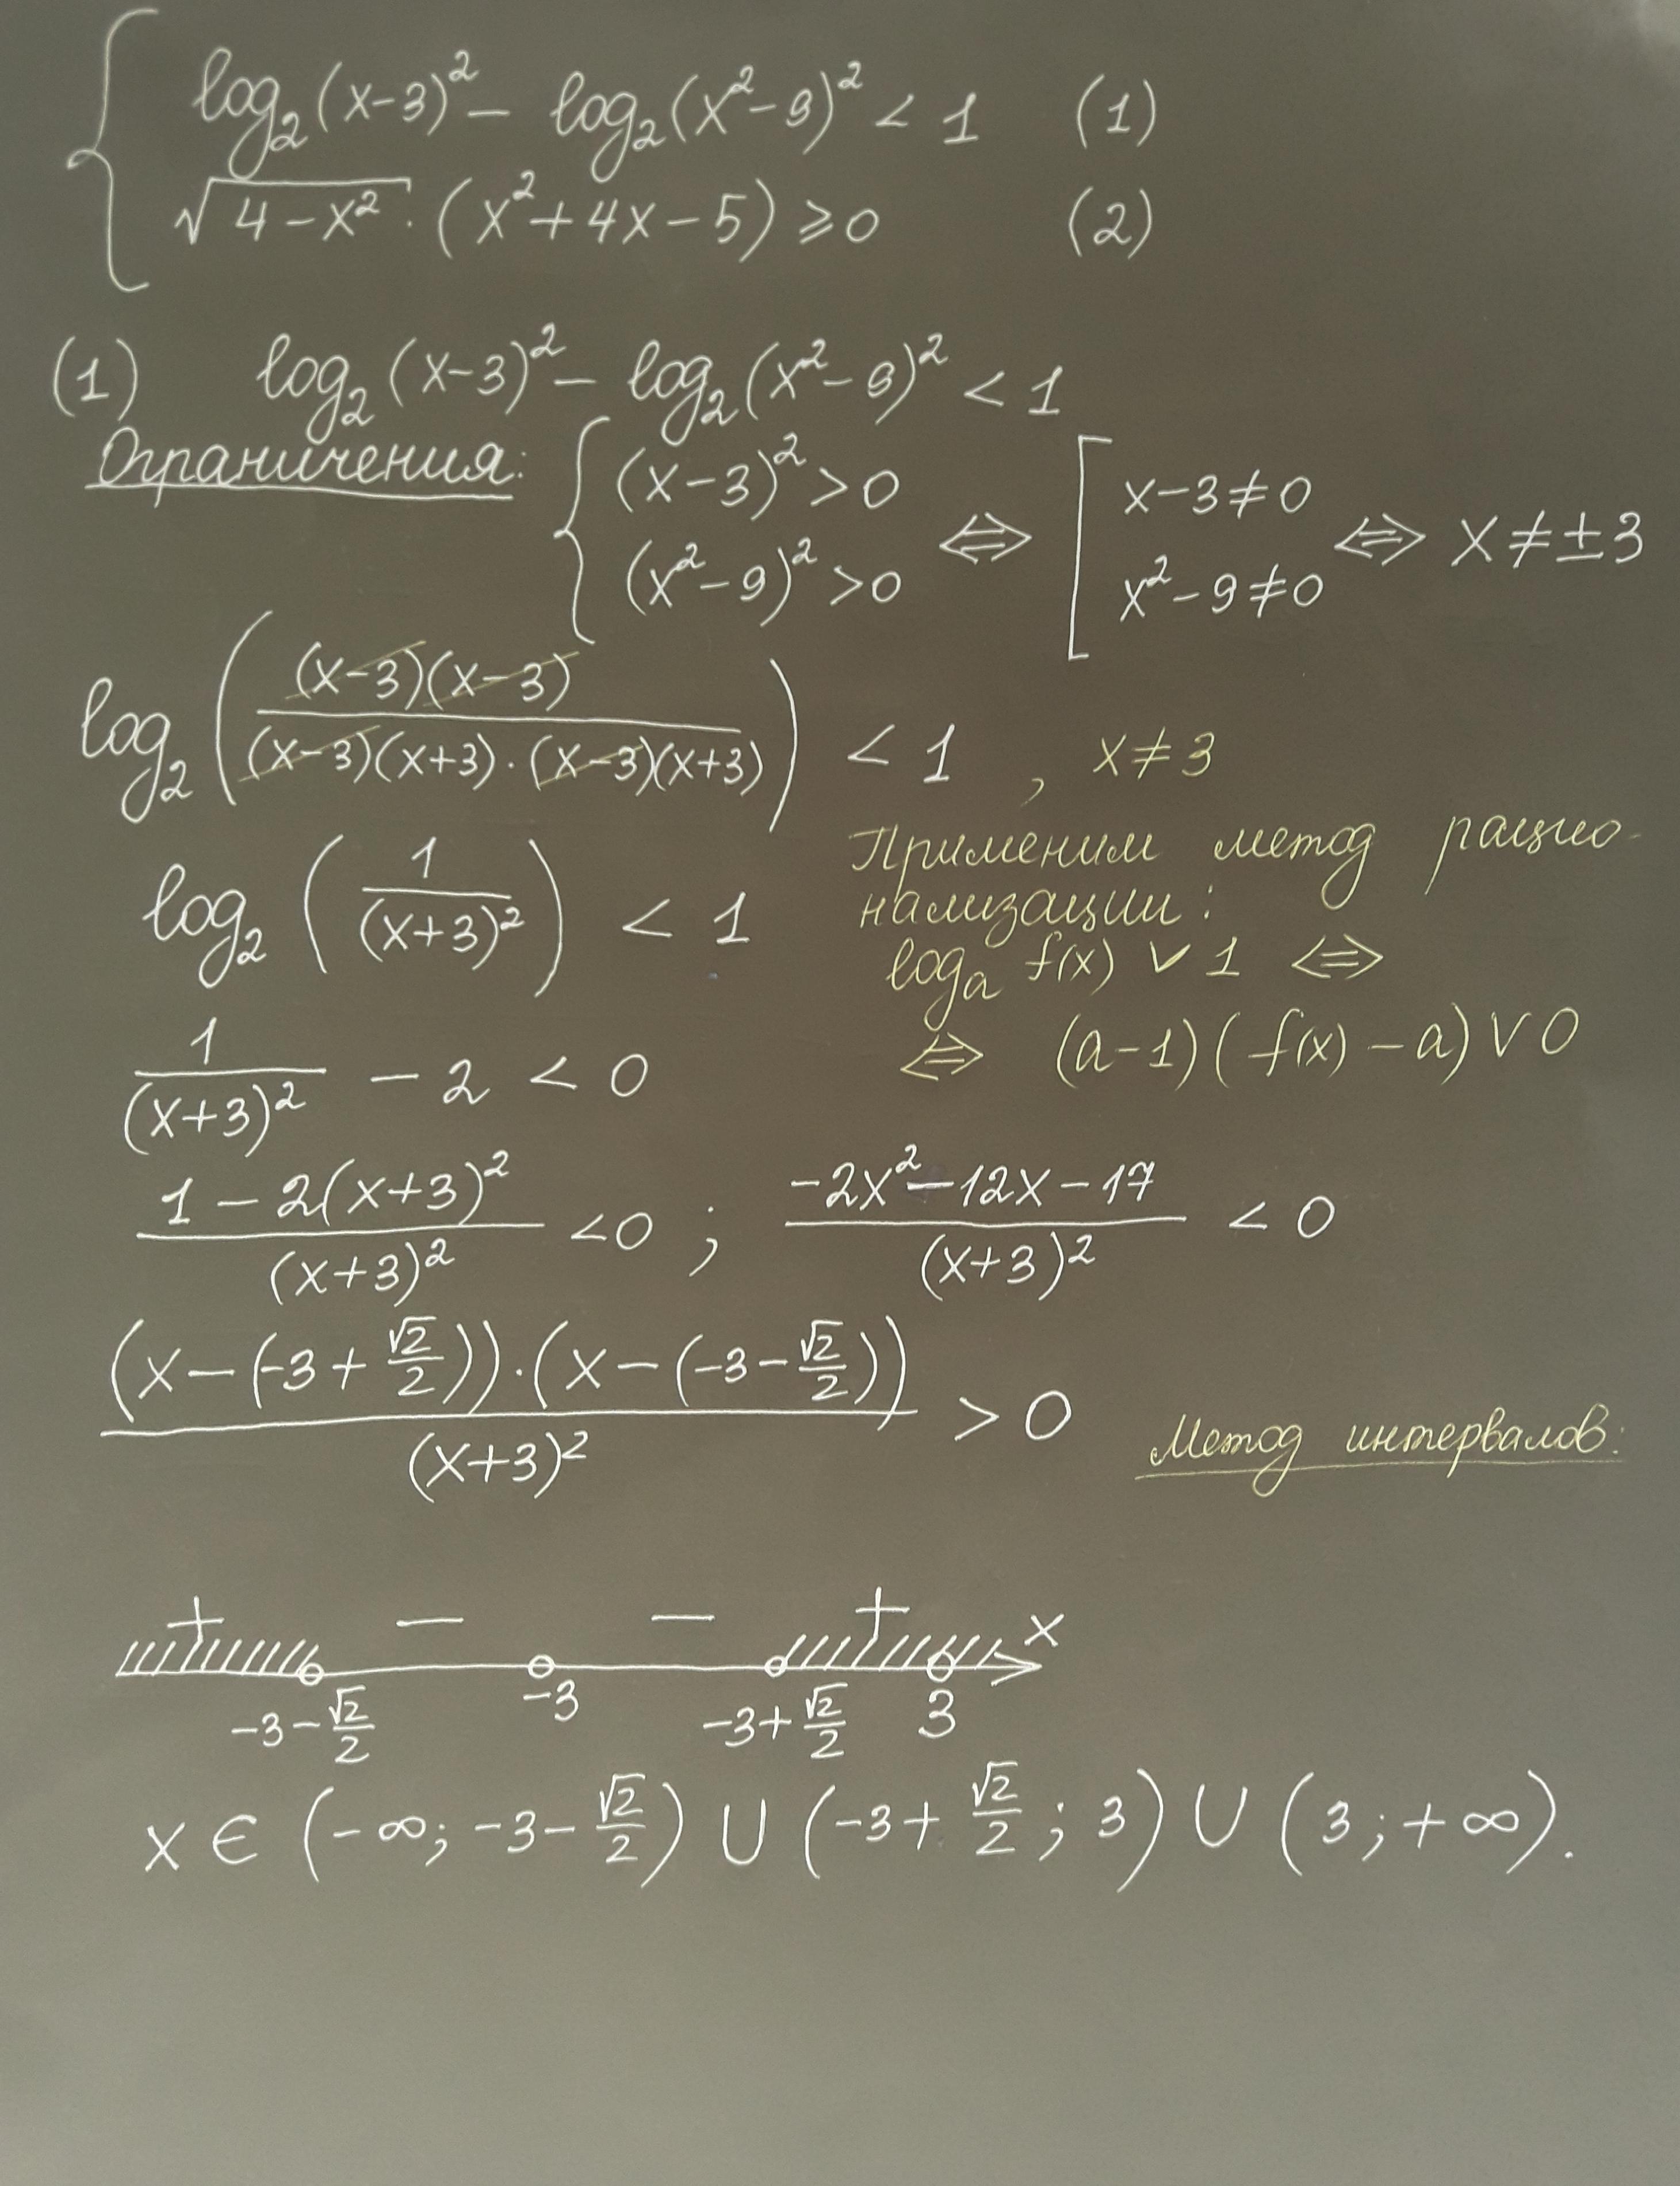 { log₂(x-3)² - log₂(x²-9)² < 1 (1)
√(4-x²) · (x²+4x-5) ⩾ 0 (2)
(1) log₂(x-3)² - log₂(x²-9)² < 1
Ограничения: { (x-3)² > 0 ⇔ [ x-3≠0 ⇔ x≠±3
(x²-9)² > 0 x²-9≠0
log₂( (x-3)(x-3) / (x-3)(x+3)·(x-3)(x+3) ) < 1 , x≠3
Применим метод рацио-
нализации:
log₂( 1 / (x+3)² ) < 1
logₐ f(x) ∨ 1 ⇔
⇔ (a-1)(f(x)-a) ∨ 0
1 / (x+3)² - 2 < 0
1-2(x+3)² / (x+3)² < 0 ; -2x²-12x-17 / (x+3)² < 0
(x-(-3+√2/2))·(x-(-3-√2/2)) / (x+3)² > 0
Метод интервалов:
+ − − + x
-3-√2/2 -3 -3+√2/2 3
x ∈ (-∞; -3-√2/2) ∪ (-3+√2/2; 3) ∪ (3; +∞).